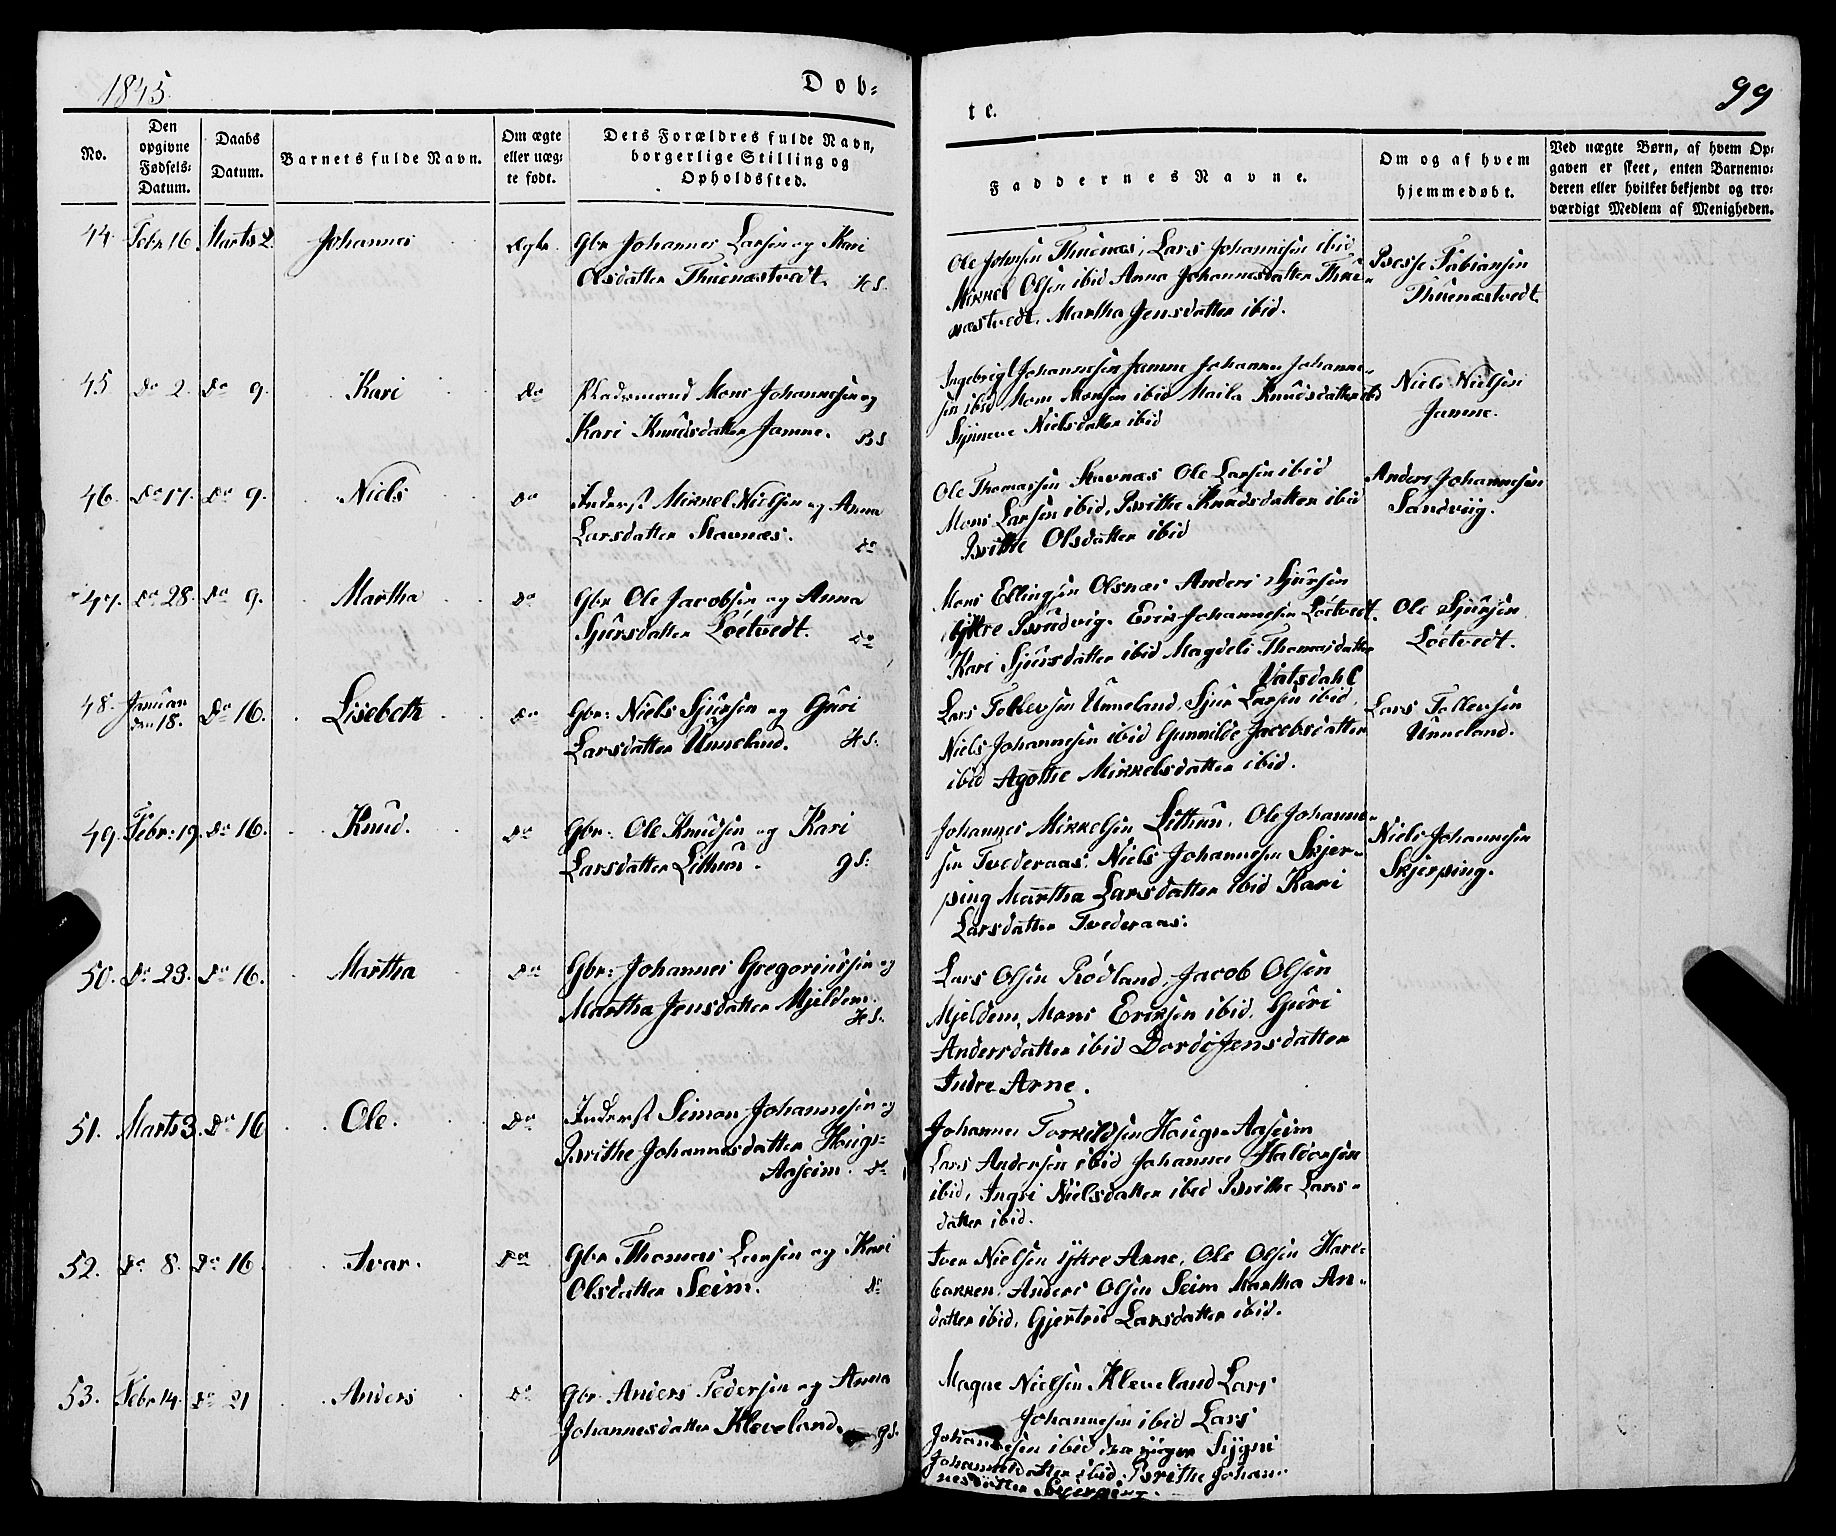 1845.
Dob-
te.
99
No.
Den opgivne Fødsels-Datum.
Daabs Datum.
Barnets fulde Navn.
Om ægte eller uæg-te født.
Dets Forældres fulde Navn, borgerlige Stilling og Opholdssted.
Faddernes Navne.
Om og af hvem hjemmedøbt.
Ved uægte Børn, af hvem Op-
gaven er skeet, enten Barnemo-
deren eller hvilket bekjendt og tro-
værdigt Medlem af Menigheden.
44. Febr 16. Marts 2. Johannes Ægte. Gbr Johannes Larsen og Kari
Olsdatter Thuenæstvedt. HS.
Ole Johnsen Thuenæs, Lars Johannesen ibid
Mikkel Olsen ibid Anna Johannesdatter Thue-
næstvedt. Martha Jensdatter ibid.
Besse Fabiansen
Thuenæstvedt
45 Do 2. Do 9. Kari Do Pladsmand Mons Johannesen og
Kari Knudsdatter Jamne. BS
Ingebrigt Johannesen Jamne Johannes Johanne-
sen ibid Mons Monsen ibid Maila Knudsdatter ibid
Synneve Nielsdatter ibid
Niels Nielsen
Jamne.
46. Do 17. Do 9. Niels Do Inderst Mikkel Nielsen og Anna
Larsdatter Stavnæs. Do
Ole Thomassen Stavnæs Ole Larsen ibid
Mons Larsen ibid, Brithe Knudsdatter ibid
Brithe Olsdatter ibid
Anders Johannesen
Sandviig.
47. Do 28. Do 9. Martha Do Gbr Ole Jacobsen og Anna
Sjursdatter Loetvedt. Do
Mons Ellingsen Olsnæs Anders Sjursen
Yttre Brudvig. Erik Johannesen Loetvedt.
Kari Sjursdatter ibid Magdeli Thomasdatter
Vatsdahl
Ole Sjursen
Loetvedt.
48. Januar den 18. Do 16. Lisebeth Do Gbr: Niels Sjursen og Guri
Larsdatter Unneland. HS.
Lars Tollevsen Unneland, Sjur Larsen ibid,
Niels Johannesen ibid Gunnilde Jacobsdatter
ibid Agothe Mikkelsdatter ibid.
Lars Tollevsen
Unneland.
49. Febr: 19. Do 16. Knud. Do Gbr: Ole Knudsen og Kari
Larsdatter Lithun. GS.
Johannes Mikkelsen Lithun, Ole Johanne-
sen Tvederaas. Niels Johannesen Skjer-
ping Martha Larsdatter ibid Kari
Larsdatter Tvederaas.
Niels Johannesen
Skjerping.
50. Do 23. Do 16. Martha Do Gbr: Johannes Gregoriussen og
Martha Jensdatter Mjeldem. HS.
Lars Olsen Rødland, Jacob Olsen
Mjeldem, Mons Eriksen ibid. Guri
Andersdatter ibid Dordi Jensdatter
Indre Arne.
51. Marts 3. Do 16 Ole. Do Inderst Simon Johannesen og
Brithe Johannesdatter Hougs-
Aaseim. Do
Johannes Torkildsen Hougs-Aaseim
Lars Andersen ibid Johannes Haldorsen
ibid, Ingri Nielsdatter ibid Brithe Lars-
datter ibid.
52. Do 8. Do 16 Ivar. Do Gbr Thomas Larsen og Kari
Olsdatter Seim. Do
Iver Nielsen Yttre Arne, Ole Olsen Hare-
bakken. Anders Olsen Seim Martha An-
datter ibid, Gjertrid Larsdatter ibid.
53. Febr 14. Do 21 Anders Do Gbr Anders Pedersen og Anna
Johannesdatter Kleveland. GS.
Magne Nielsen Kleveland Lars
Johannesen ibid Lars
Johannesen ibid den yngre Sygni
Johannesdatter ibid. Brithe Johan-
nesdatter